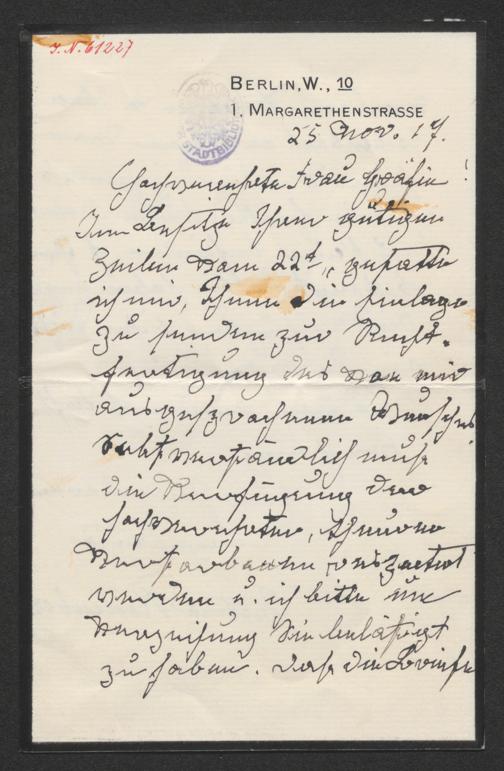 J.N. 61227
BERLIN, W., 10
1. MARGARETHENSTRASSE
25 Nov. 17.
Hochverehrte Frau Gräfin!
Im Besitze Ihrer gütigen
Zeilen vom 22t, gestatte
ich mir, Ihnen die Einlage
zu senden zur Recht-
fertigung des von mir
ausgesprochenen Wunsches
Selbstverständlich muß
die Verfügung der
hochverehrten, theuren
Verstorbenen respectirt
werden u. ich bitte um
Verzeihung Sie belästigt
zu haben. Daß die Briefe